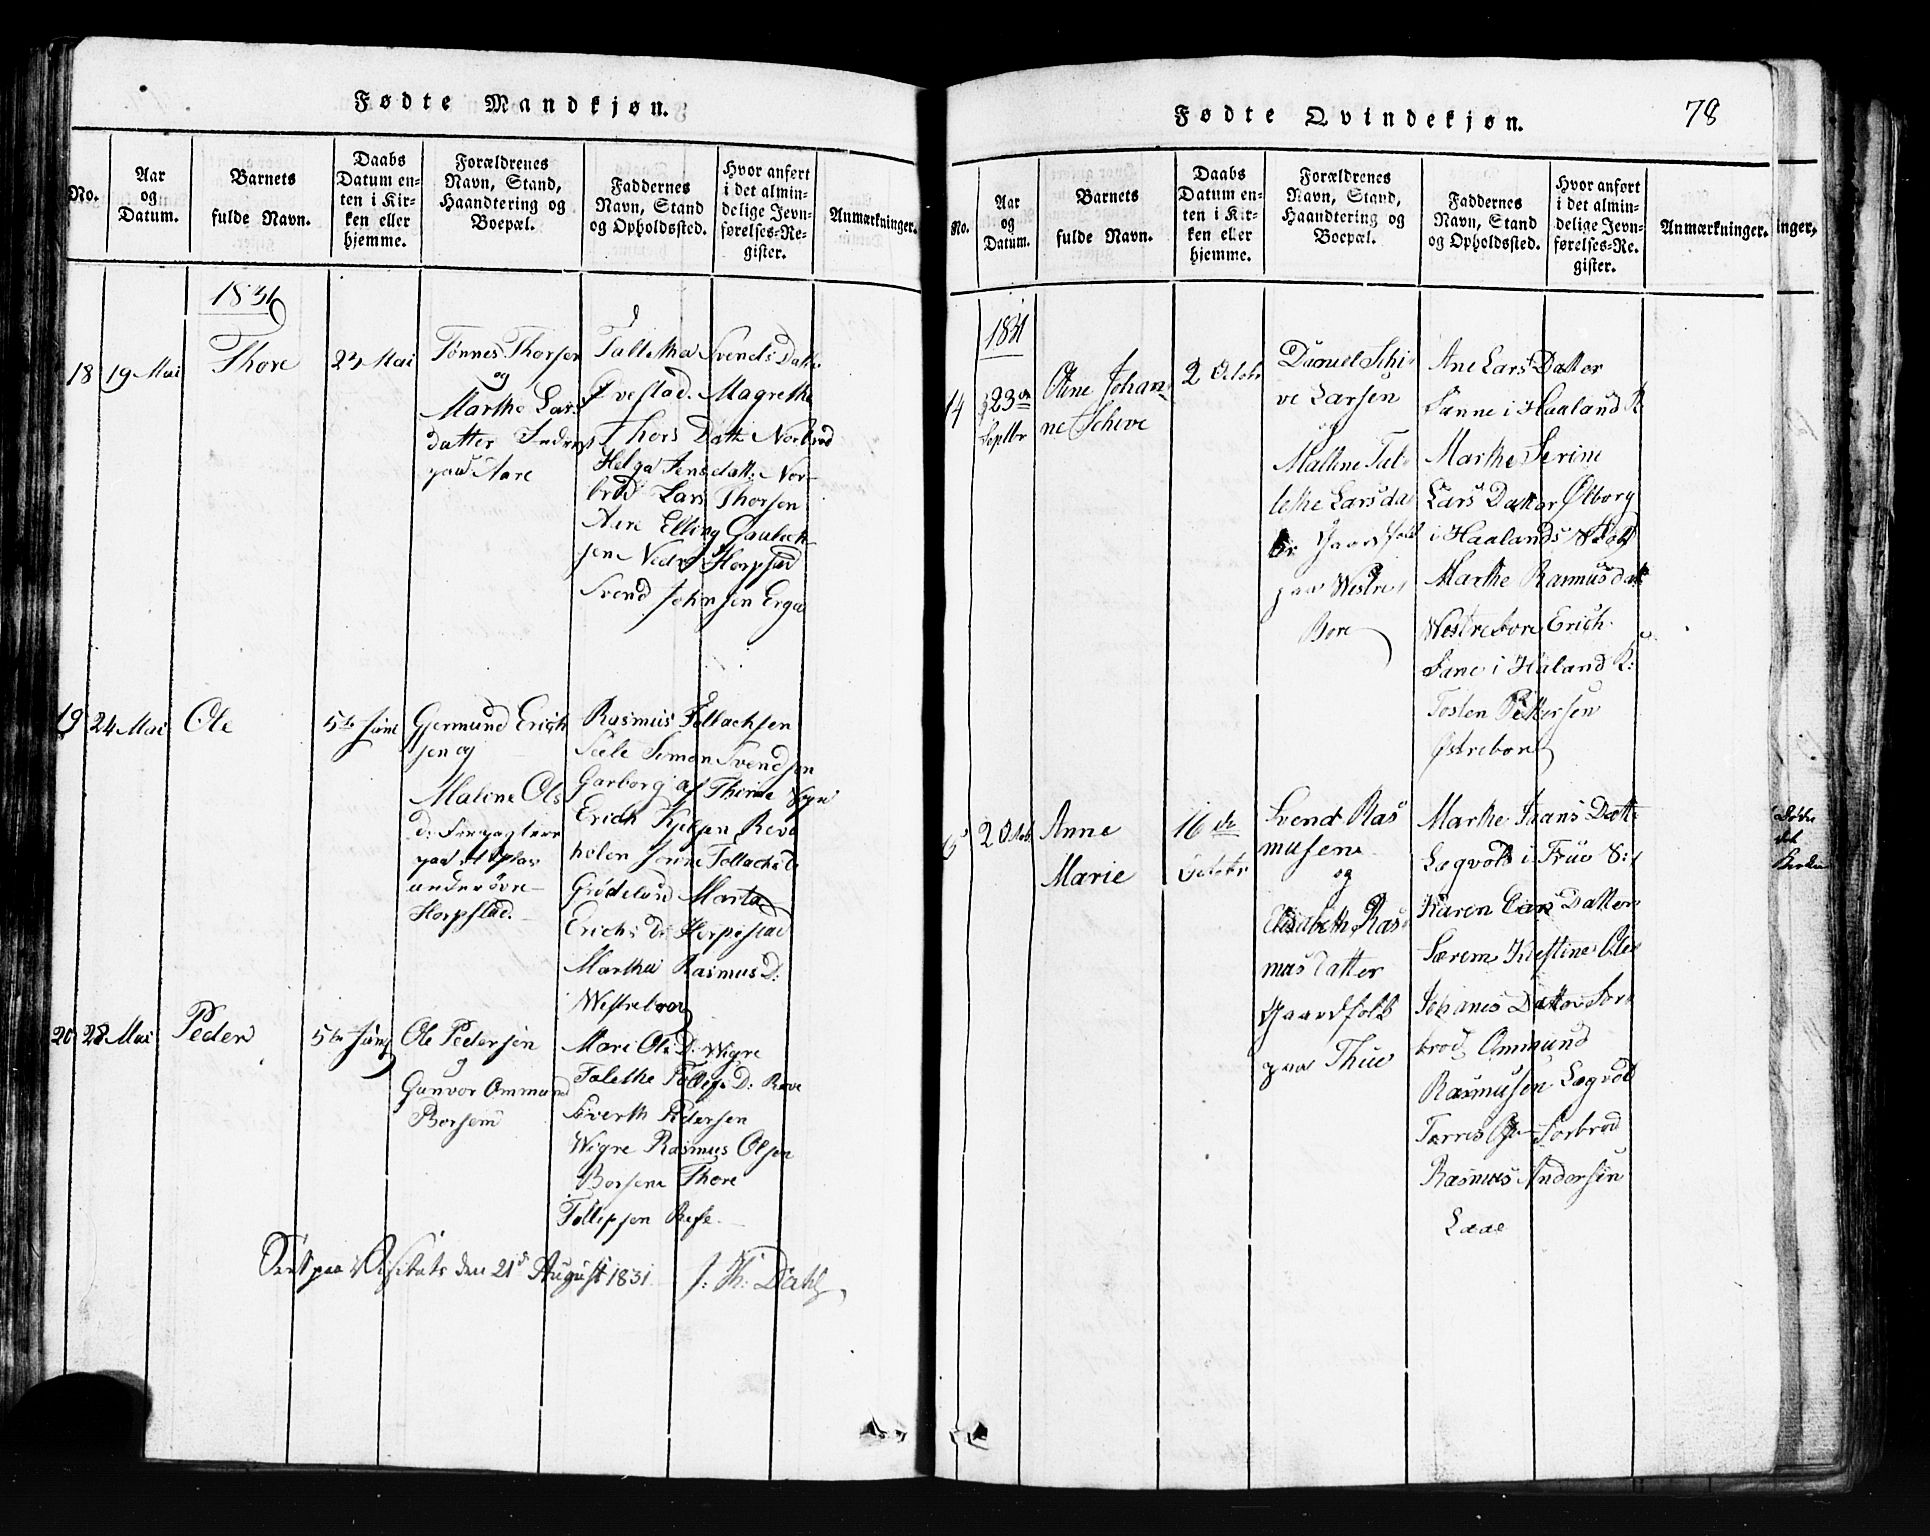 Fødte Mandkjøn.
No.
Aar
og
Datum.
Barnets
fulde Navn.
Daabs
Datum en-
ten i Kir-
ken eller
hjemme.
Forældrenes
Navn, Stand,
Haandtering og
Boepæl.
Faddernes
Navn, Stand
og Opholdssted.
Hvor anført
i det almin-
delige Jevn-
førelses-Re-
gister.
Anmærkninger.
1831
18
19 Mai
Thore
23 Mai
Tønnes Thorsen
og
Marthe Lars
datter
paa Aare
Talletha Svends Datt:
Qvestad. Magrethe
Thors Datt: Norbrød
Helga Jens datt: Nor-
brød Lars Thorsen
Aare Elling
sen Nedre Horpstad
Svend Johnsen Erga
19
24 Mai
Ole
5te Juni
Gjermund Erich
sen og
Maline Ols
d: Forpagtere
paa et plas
under øvre
Horpstad.
Rasmus Tollachsen
Sele Simon Svendsen
Garborg af Thime Sogn
Erich Kjelsen Reve
helen Tollachs D
Grødeland Marta
Erichs D: Horpestad
Martha Rasmus D:
Westrebore
20
28 Mai
Peder
5te Juni
Ole Pedersen
og
Gunvor Ommund
Borsem
Mari Ols D: Wigre
Talethe Tollefs D: Reve
Siverth Pedersen
Wigre Rasmus Olsen
Borsem Thore
Tollefsen Refe
Seet paa Visitats den 21de August 1831. J: Th: Dahl
Fødte Qvindekjøn.
78
No.
Aar
og
Datum.
Barnets
fulde Navn.
Daabs
Datum en-
ten i Kir-
ken eller
hjemme.
Forældrenes
Navn, Stand,
Haandtering og
Boepæl.
Faddernes
Navn, Stand
og Opholdssted.
Hvor anført
i det almin-
delige Jevn-
førelses-Re-
gister.
Anmærkninger.
inger.
1831
14
23de
Septbr
Oline Johan-
ne Schive
2 Octobr
Daniel Schi-
ve Larsen
og
Malene Tal-
lethe Larsdat-
ter Gaardfolk
paa Westre
Bore
Ane Lars Datter
Sanne i Haaland
Marthe Serine
Lars Datter Ølborg
i Haalands
Marthe Rasmusdatt
Westrebore Erich
Sane i Haland
Tosten Pettersen
Østrebore
2 Octob
Anne
Marie
16 de
Octobr
Svend Ras
musen
og
Elisabeth Ras-
mus datter
Gaardfolk
paa Thue
Marthe Datt:
Legvold i
Karen Lars Datter
Særem Kiestine
Johanes Datter Sør-
brød Ommund
Rasmusen Legvold
Torres Sørbrød
Rasmus Andersen
Laae